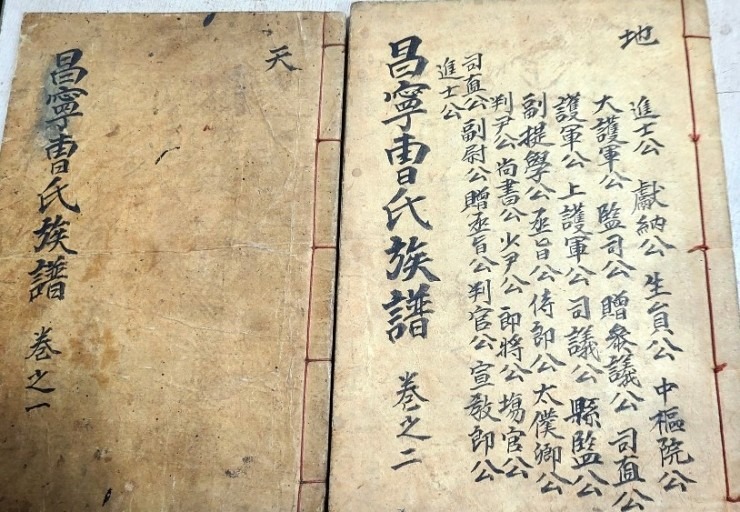 天
昌寧曺氏族譜 卷之一
地
進士公 獻納公 生員公 中樞院公
大護軍公 監司公 贈叅議公 司直公
護軍公 上護軍公 司議公 縣監公
副提學公 丞旨公 侍郎公 太僕卿公
判尹公 尚書公 少尹公 郎將公 塲官公
司直公 副尉公 贈丞旨公 判官公 宣敎郎公
進士公
昌寧曺氏族譜 卷之二